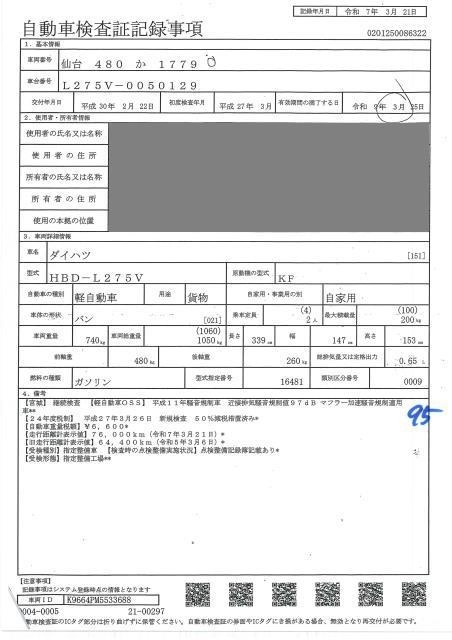 記録年月日 令和 7年 3月 21日
自動車検査証記録事項 0201250086322
1．基本情報
車両番号 仙台 480 か 1779
車台番号 L275V-0050129
交付年月日 平成 30年 2月 22日 初度検査年月 平成 27年 3月 有効期間の満了する日 令和 9年 3月 25日
2．使用者・所有者情報
使用者の氏名又は名称
使用者の住所
所有者の氏名又は名称
所有者の住所
使用の本拠の位置
3．車両詳細情報
車名 ダイハツ [151]
型式 HBD-L275V 原動機の型式 KF
自動車の種別 軽自動車 用途 貨物 自家用・事業用の別 自家用
車体の形状 バン [021] 乗車定員 (4) 2人 最大積載量 (100) 200kg
車両重量 740kg 車両総重量 (1060) 1050kg 長さ 339cm 幅 147cm 高さ 153cm
前軸重 480kg 後軸重 260kg 総排気量又は定格出力 0.65 L
燃料の種類 ガソリン 型式指定番号 16481 類別区分番号 0009
4．備考
【宮城】 継続検査 【軽自動車OSS】 平成11年騒音規制車 近接排気騒音規制値97dB マフラー加速騒音規制適用
車**
【24年度税制】 平成27年3月26日 新規検査 50%減税措置済み*
【自動車重量税額】 ¥6,600*
【走行距離計表示値】 76,000km (令和7年3月21日)*
【旧走行距離計表示値】 64,400km (令和5年3月6日)*
【受検種別】 指定整備車 【検査時の点検整備実施状況】 点検整備記録簿記載あり*
【受検形態】 指定整備工場**
95
【注意事項】
記録事項はシステム登録時点の情報となります
車両ID K9664PM5533688
0004-0005 21-00297
動車検査証のICタグ部分は折り曲げずに保管ください。自動車検査証の券面やICタグにき損がある場合、無効となり再交付が必要です。